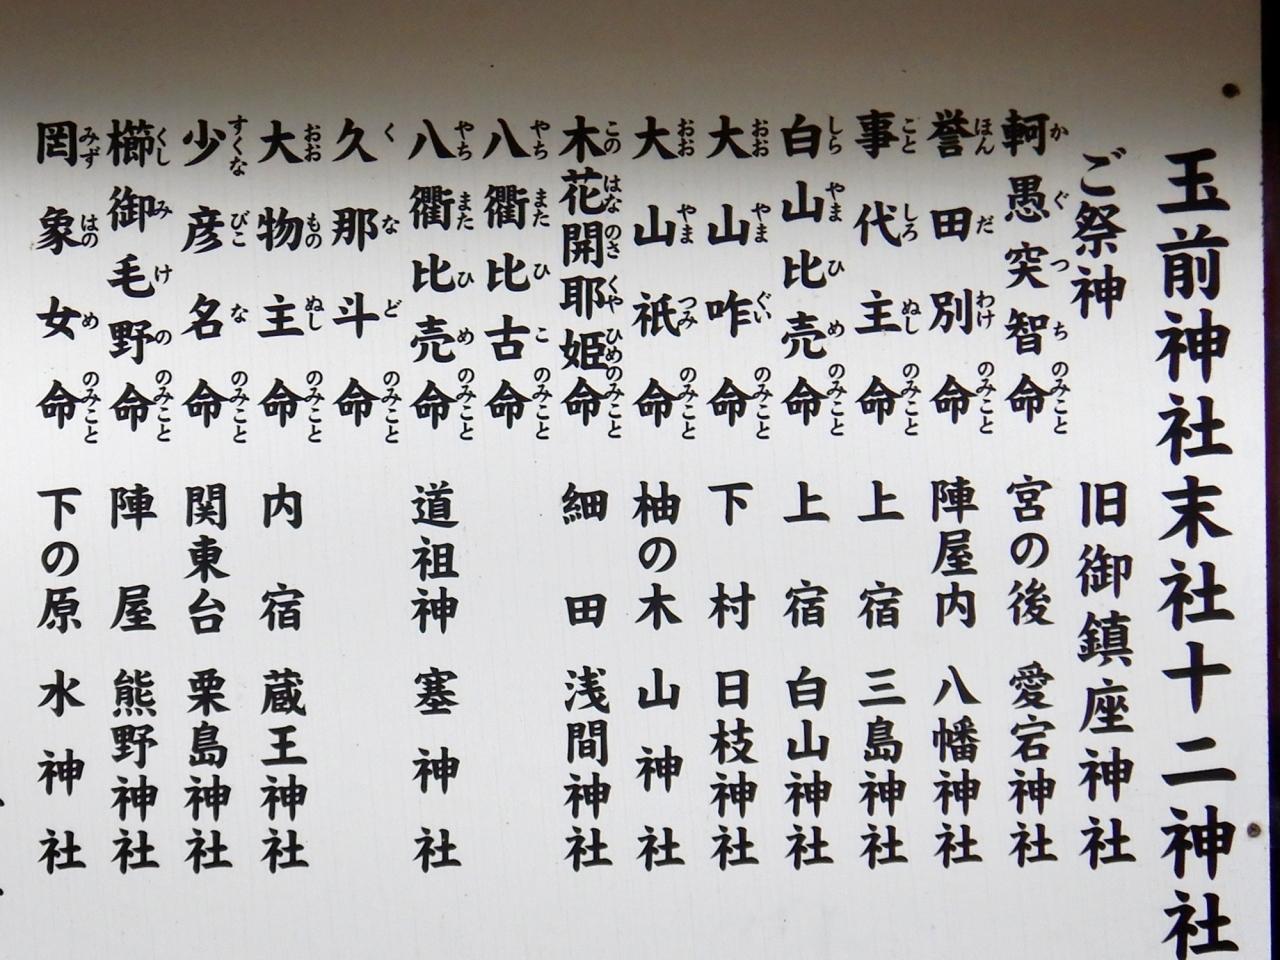 玉前神社末社十二神社
ご祭神 旧御鎮座神社
軻愚突智命 かぐつちのみこと 宮の後 愛宕神社
誉田別命 ほんだわけのみこと 陣屋内 八幡神社
事代主命 ことしろぬしのみこと 上宿 三島神社
白山比売命 しらやまひめのみこと 上宿 白山神社
大山咋命 おおやまぐいのみこと 下村 日枝神社
大山祇命 おおやまつみのみこと 柚の木 山神社
木花開耶姫命 このはなのさくやひめのみこと 細田 浅間神社
八衢比古命 やちまたひこのみこと
八衢比売命 やちまたひめのみこと 道祖神 塞神社
久那斗命 くなどのみこと
大物主命 おおものぬしのみこと 内宿 蔵王神社
少彦名命 すくなびこなのみこと 関東台 粟島神社
櫛御毛野命 くしみけののみこと 陣屋 熊野神社
罔象女命 みずはのめのみこと 下の原 水神社